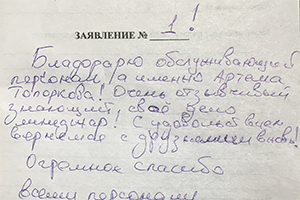 ЗАЯВЛЕНИЕ № 1!
Благодарю обслуживающий
персонал, а именно Артема
Топоркова! Очень отзывчивый
знающий своё дело
менеджер! С удовольствием
вернемся с друзьями
Огромное спасибо
всему персоналу